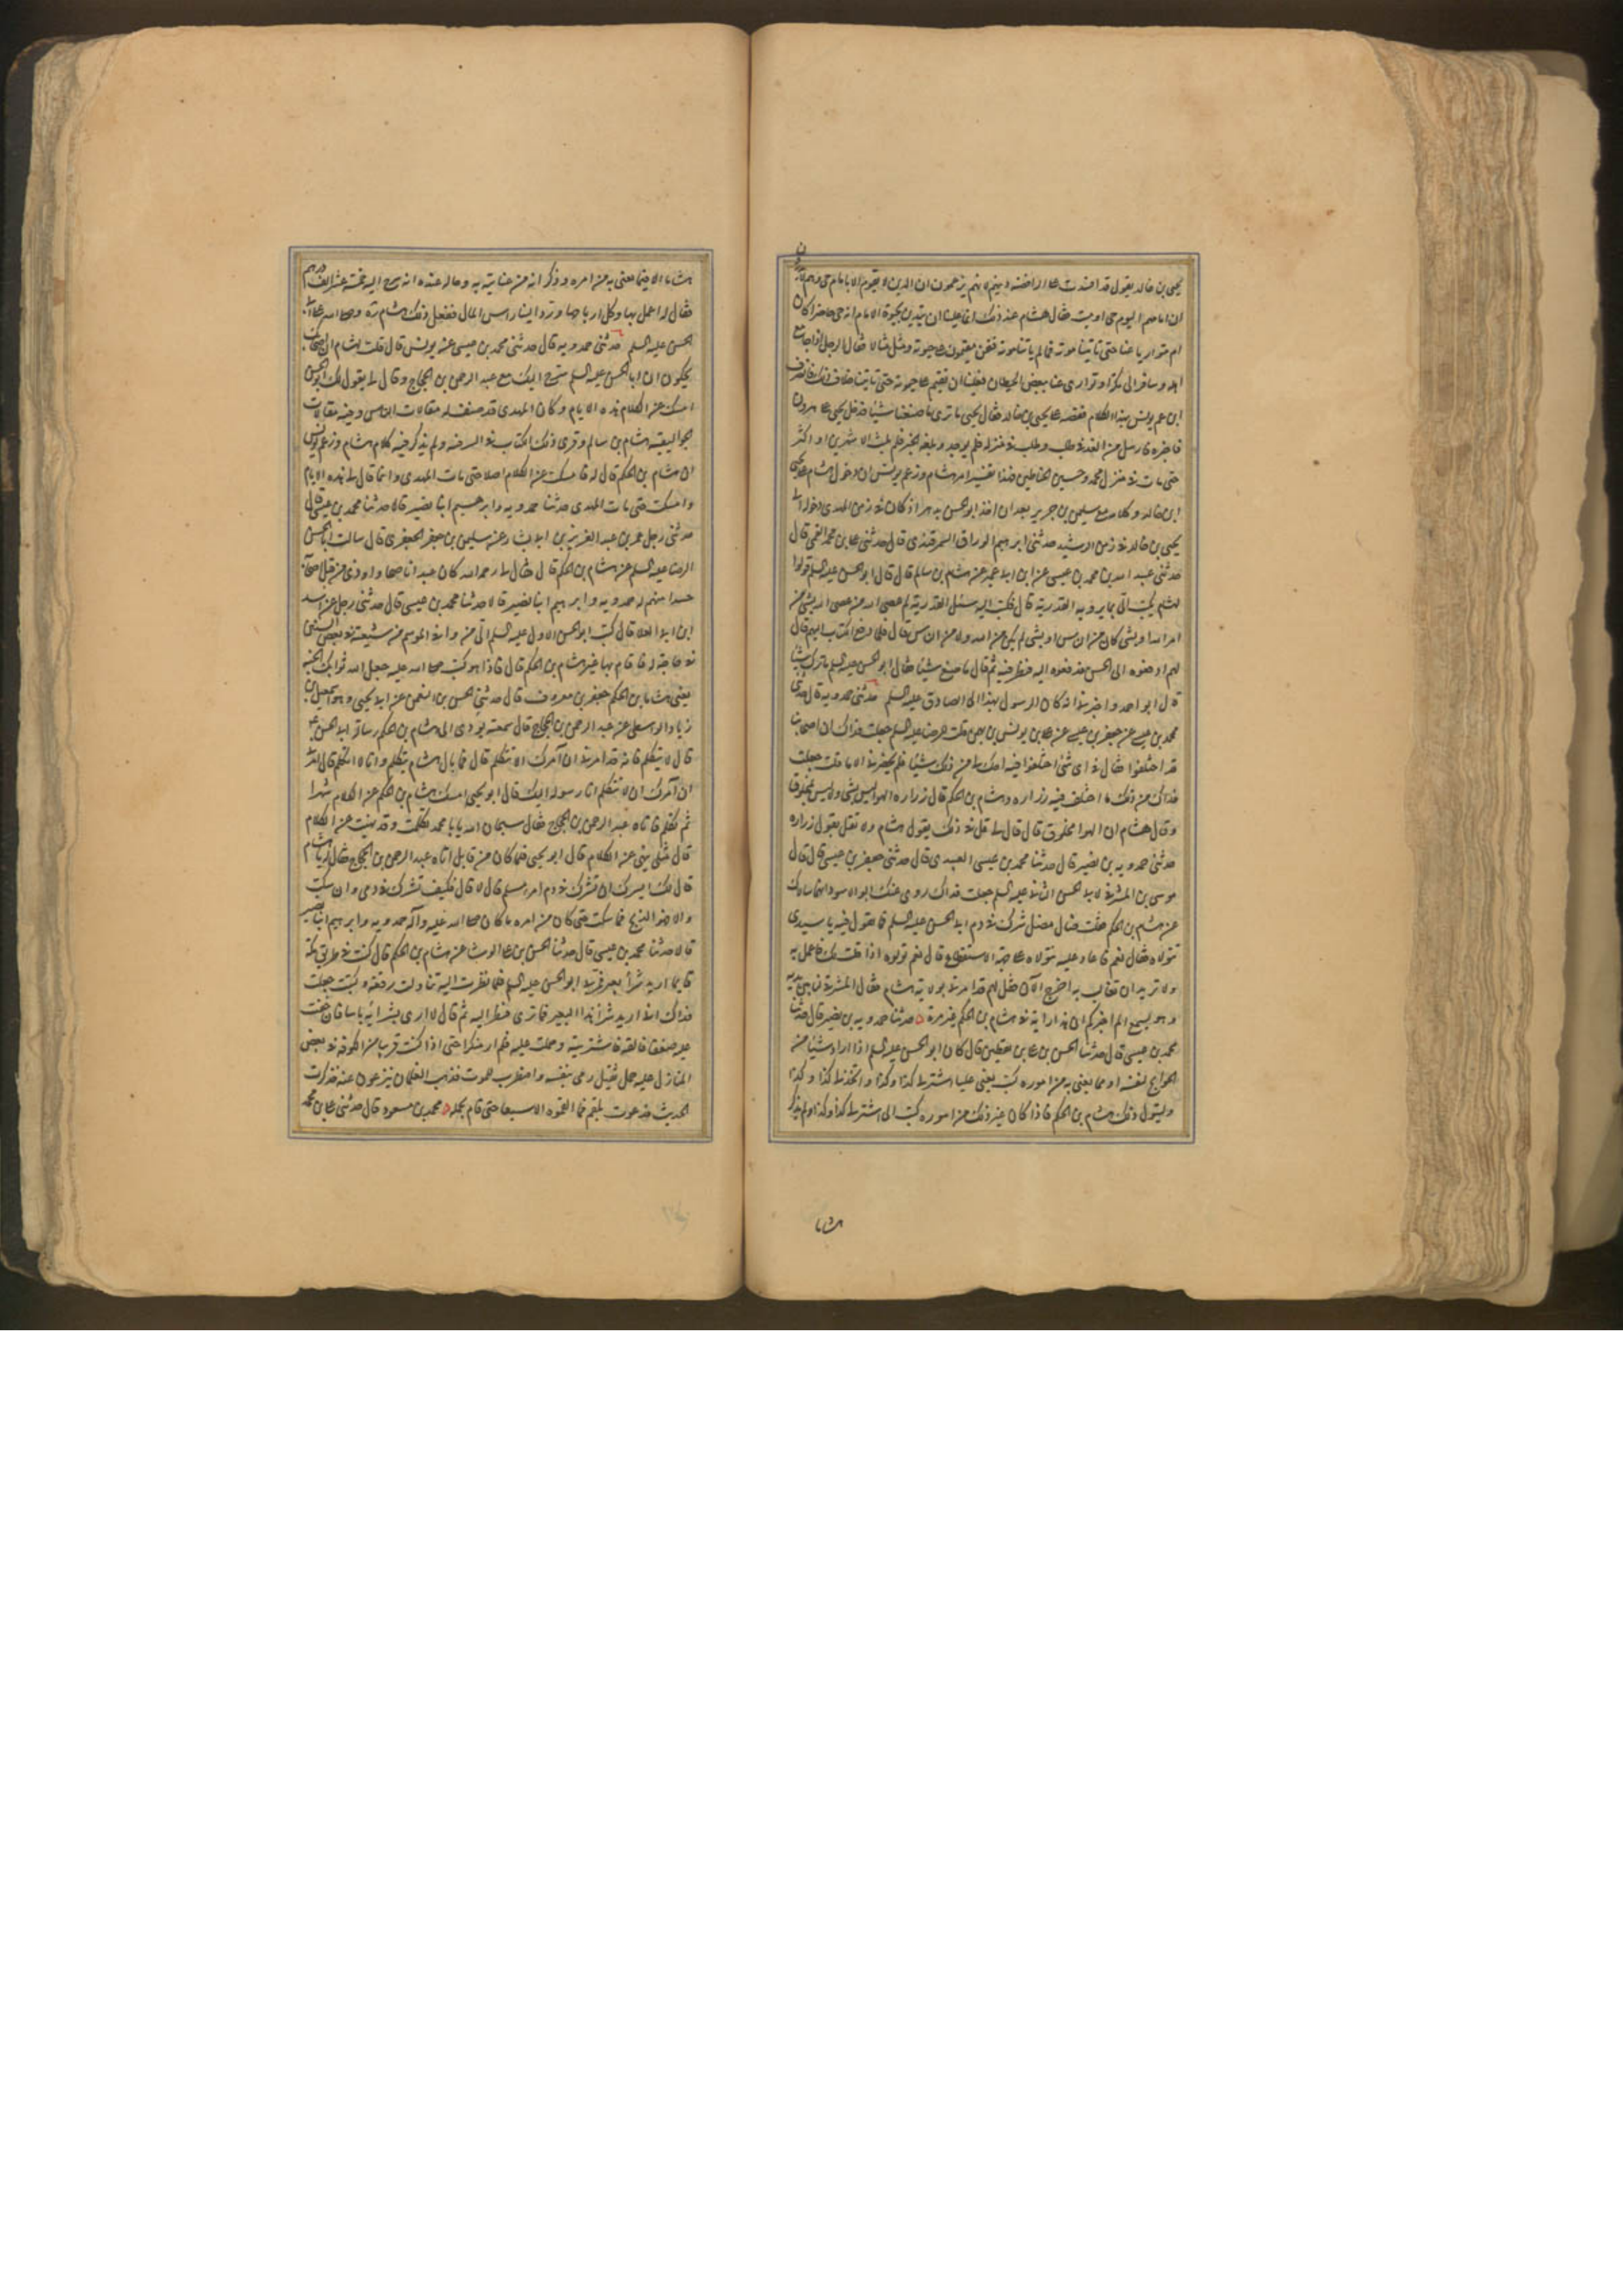 يحيى بن خالد يقول قد افسدت على الرافضة دينهم لانهم يزعمون ان الدين لا يقوم الا بامام حى وهم لا يدرون
ان امامهم اليوم حى او ميت فقال هشام عند ذلك انما علينا ان ندين بحيوة الامام انه حى حاضرا كان
ام متواريا عنا حتى تاتينا موته فما لم ياتنا موته فنحن مقيمون على حيوته ومثل مثالا فقال الرجل اذا جامع
اهله وسافر الى مكة او توارى عنا ببعض الحيطان فعلينا ان نقيم على حيوته حتى ياتينا خلاف ذلك فانصرف
ابن عم يونس بهذا الكلام فقصه على يحيى بن خالد فقال يحيى ما ترى ما صنعنا شيئا فدخل يحيى على هرون
فاخبره فارسل من الغد فى طلبه وطلب فى منزله فلم يوجد وبلغه الخبر فلم يلبث الا شهرين او اكثر
حتى مات فى منزل محمد وحسين الحناطين فهذا تفسير امر هشام وزعم يونس ان دخول هشام على يحيى
ابن خالد وكلامه مع سليمن بن جرير بعد ان اخذ ابو الحسن بدهر اذ كان فى زمن المهدى ودخوله الى
يحيى بن خالد فى زمن الرشيد حدثنى ابرهيم الوراق السمرقندى قال حدثنى على بن محمد القمى قال
حدثنى عبد الله بن محمد بن عيسى عن ابن ابى عمير عن هشام بن سالم قال قال ابو الحسن عليه السلم قولوا
لهشام يكتب الى بما يرد به القدرية قال فكتب اليه يسئل القدرية لم عصى الله من عصى اله بشى من
امر الله او بشى كان من الناس او بشى لم يكن من الله ولا من الناس قال فلما دفع الكتاب اليه قال
لهم ادفعوه الى الحسن فدفعوه اليه فنظر فيه ثم قال ما صنع شيئا فقال ابو الحسن عليه السلم ما ترك شيئا
قال ابو احمد واخبرنى انه كان الرسول بهذا الى الصادق عليه السلم حدثنى حمدويه قال حدثنى
محمد بن عيسى عن جعفر بن عيسى عن على بن يونس بن بهمن قلت للرضا عليه السلم جعلت فداك ان اصحابنا
قد اختلفوا فقال فى اى شى اختلفوا فيه احك لى من ذلك شيئا فلم يحضرنى الا ما قلت جعلت
فداك من ذلك ما اختلف فيه زراره وهشام بن الحكم قال زراره الهوا ليس بشى وليس بمخلوق
وقال هشام ان الهوا مخلوق قال قال لى قل فى ذلك بقول هشام ولا تقل بقول زراره
حدثنى حمدويه بن نصير قال حدثنا محمد بن عيسى العبيدى قال حدثنى جعفر بن عيسى قال قال
موسى بن المشرقى لابى الحسن الثانى عليه السلم جعلت فداك روى عنك ابو الاسود انهما سالاك
عن هشام بن الحكم فقلت ضال مضل شرك فى دم ابى الحسن عليه السلم فما تقول فيه يا سيدى
نتولاه فقال نعم فاعاد عليه نتولاه على جهة الاستقطاع قال نعم تولوه اذا قلت لك فاعمل به
ولا تريد ان تغالب به اخرج الآن فقل لهم قد امرنى بولاية هشام فقال المشرقى لنا بين يديه
وهو يسمع الم اخبركم ان هذا رايه فى هشام بن الحكم غير مرة حدثنا حمدويه بن نصير قال حدثنا
محمد بن عيسى قال حدثنا الحسن بن على بن يقطين قال كان ابو الحسن عليه السلم اذا اراد شيئا من
الحوايج لنفسه او مما يعنى به من اموره كتب يعنى عليا اشتر لى كذا وكذا واتخذ لى كذا وكذا
وليتول ذلك هشام بن الحكم فاذا كان غير ذلك من اموره كتب الى اشتر لى كذا وكذا ولم يذكر
هشاما
هشاما الا فيما يعنى به من امره وذكر انه من عنايته به وحاله عنده انه سرح اليه خمسة عشر الف درهم
فقال له اعمل بها وكل ارباحها ورد الينا راس المال ففعل ذلك هشام ره وصلى الله على ابى
الحسن عليه السلم حدثنى حمدويه قال حدثنى محمد بن عيسى عن يونس قال قلت لهشام ان اصحابك
يحكون ان ابا الحسن عليه السلم سرح اليك مع عبد الرحمن بن الحجاج وقال لى يقول لك ابو الحسن
امسك عن الكلام هذه الايام وكان المهدى قد صنف له مقالات الناس وفيه مقالات
الجواليقيه هشام بن سالم وقرى ذلك الكتاب فى السرخه ولم يذكر فيه كلام هشام وزعم يونس
ان هشام بن الحكم قال له فامسكت عن الكلام اصلا حتى مات المهدى وانما قال لى هذه الايام
فامسكت حتى مات المهدى حدثنا حمدويه وابرهيم ابنا نصير قالا حدثنا محمد بن عيسى قال
حدثنى رجل عمر بن عبد العزيز بن ابى بشار عن سليمن بن جعفر الجعفرى قال سالت ابا الحسن
الرضا عليه السلم عن هشام بن الحكم قال فقال لى رحمه الله كان عبدا ناصحا واوذى من قبل اصحابه
حسدا منهم له حمدويه وابرهيم ابنا نصير قالا حدثنا محمد بن عيسى قال حدثنى رجل عن اسد
ابن ابى العلا قال كتب ابو الحسن الاول عليه السلم الى من وافى الموسم من شيعته فى بعض السنين
فى حاجة له فما قام بها غير هشام بن الحكم قال فاذا هو كتب صلى الله عليه جعل الله ثوابك الجنة
يعنى هشام بن الحكم جعفر بن معروف قال حدثنى الحسن بن النعمن عن ابى يحيى وهو اسمعيل بن
زياد الواسطى عن عبد الرحمن بن الحجاج قال سمعته يودى الى هشام بن الحكم رسالة ابى الحسن ع
قال لا تتكلم فانه قد امرنى ان آمرك الا تتكلم قال فما بال هشام يتكلم وانا لا اتكلم قال امرنى
ان آمرك ان لا تتكلم انا رسوله اليك قال ابو يحيى امسك هشام بن الحكم عن الكلام شهرا
ثم تكلم فاتاه عبد الرحمن بن الحجاج فقال سبحان الله يا با محمد تكلمت وقد نهيت عن الكلام
قال مثلى لا ينهى عن الكلام قال ابو يحيى فلما كان من قابل اتاه عبد الرحمن بن الحجاج فقال له يا هشام
قال لك ايسرك ان تشرك فى دم امرء مسلم قال لا قال فكيف تشرك فى دمى فان سكت
والا فهو الذبح فما سكت حتى كان من امره ما كان صلى الله عليه وآله حمدويه وابرهيم ابنا نصير
قالا حدثنا محمد بن عيسى قال حدثنا الحسن بن على الوشا عن هشام بن الحكم قال كنت فى طريق مكة
قايما اريد شرآء بعير فمر بى ابو الحسن عليه السلم فلما نظرت اليه تناولت رقعة وكتبت جعلت
فداك انى اريد شرآء هذا البعير فما ترى فنظر اليه ثم قال لا ارى بشرائه باسا فان خفت
عليه ضعفا فالقمه فاشتريته وحملت عليه فلم ار منكرا حتى اذا كنت قريبا من الكوفة فى بعض
المنازل عليه حمل ثقيل رمى بنفسه واضطرب للموت فذهب الغلمان ينزعون عنه فذكرت
الحديث فدعوت بلقم فما القموه الا سبعا حتى قام بحمله محمد بن مسعود قال حدثنى على بن محمد